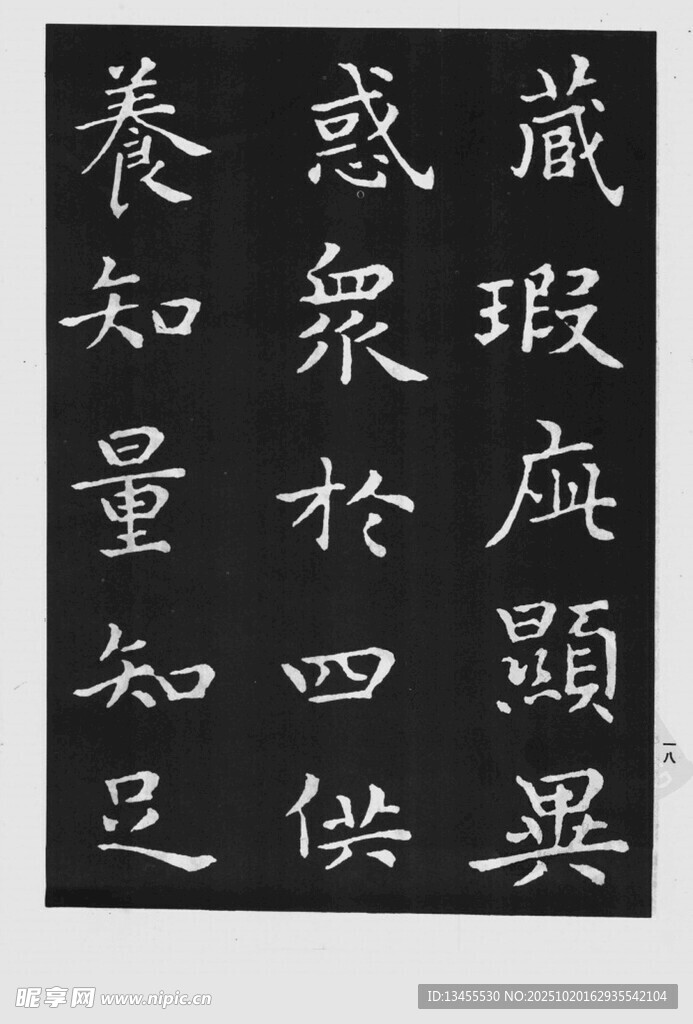 藏瑕疵顯異
惑衆於四供
養知量知足
一八
昵享网 www.nipic.cn
ID:13455530 NO:20251020162935542104